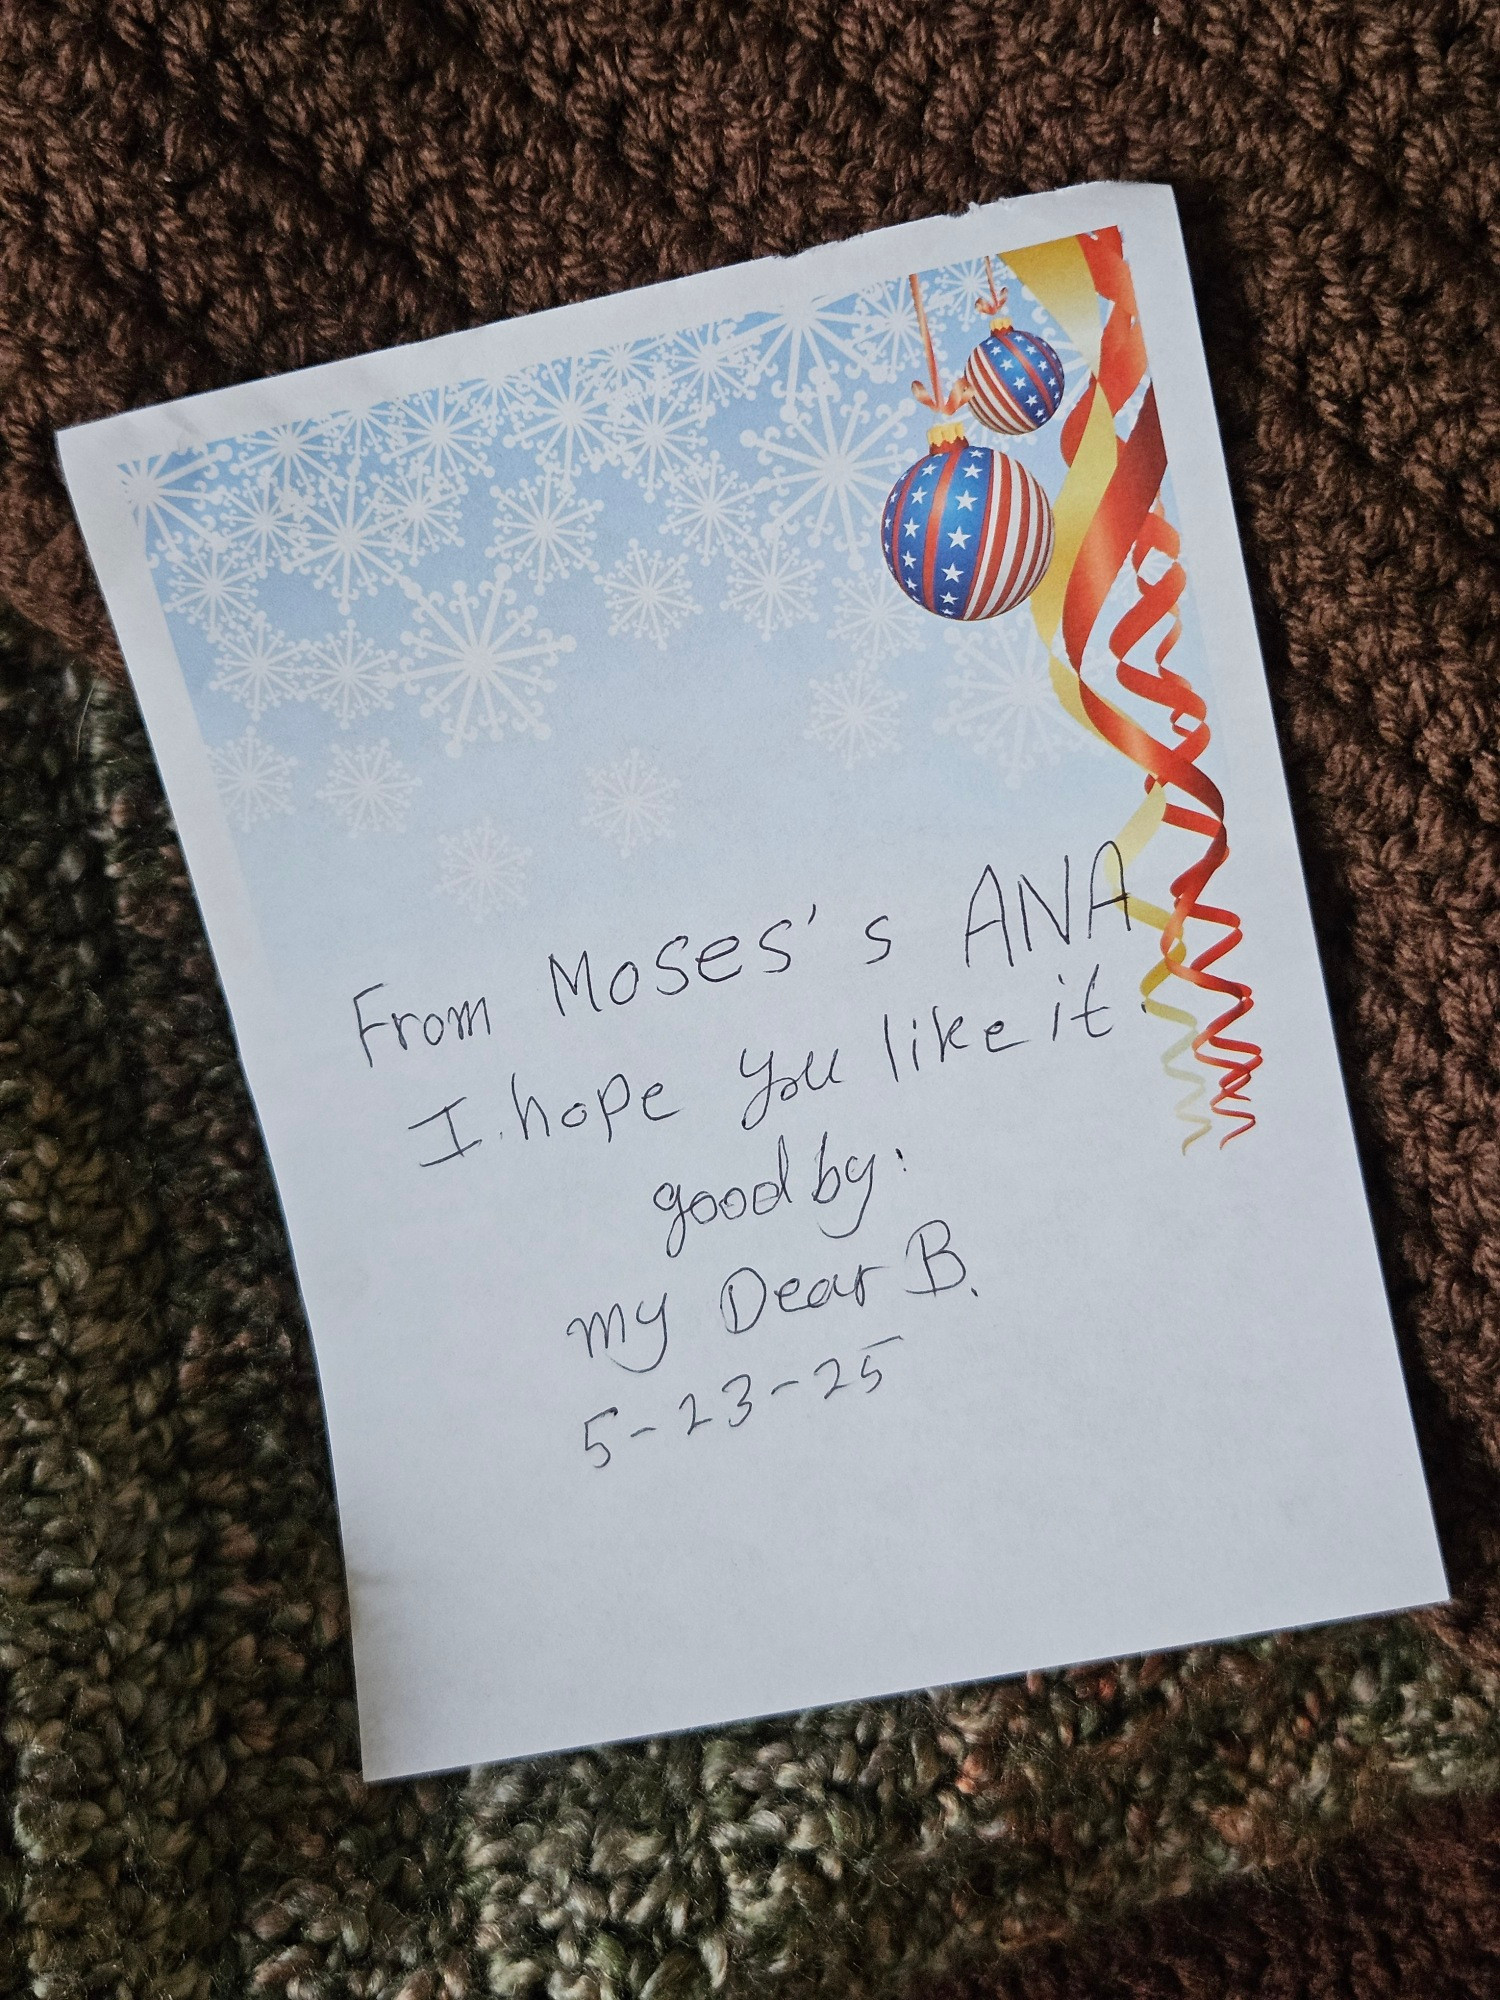 From Moses's ANA
I. hope you like it.
good by:
my Dear B.
5-23-25